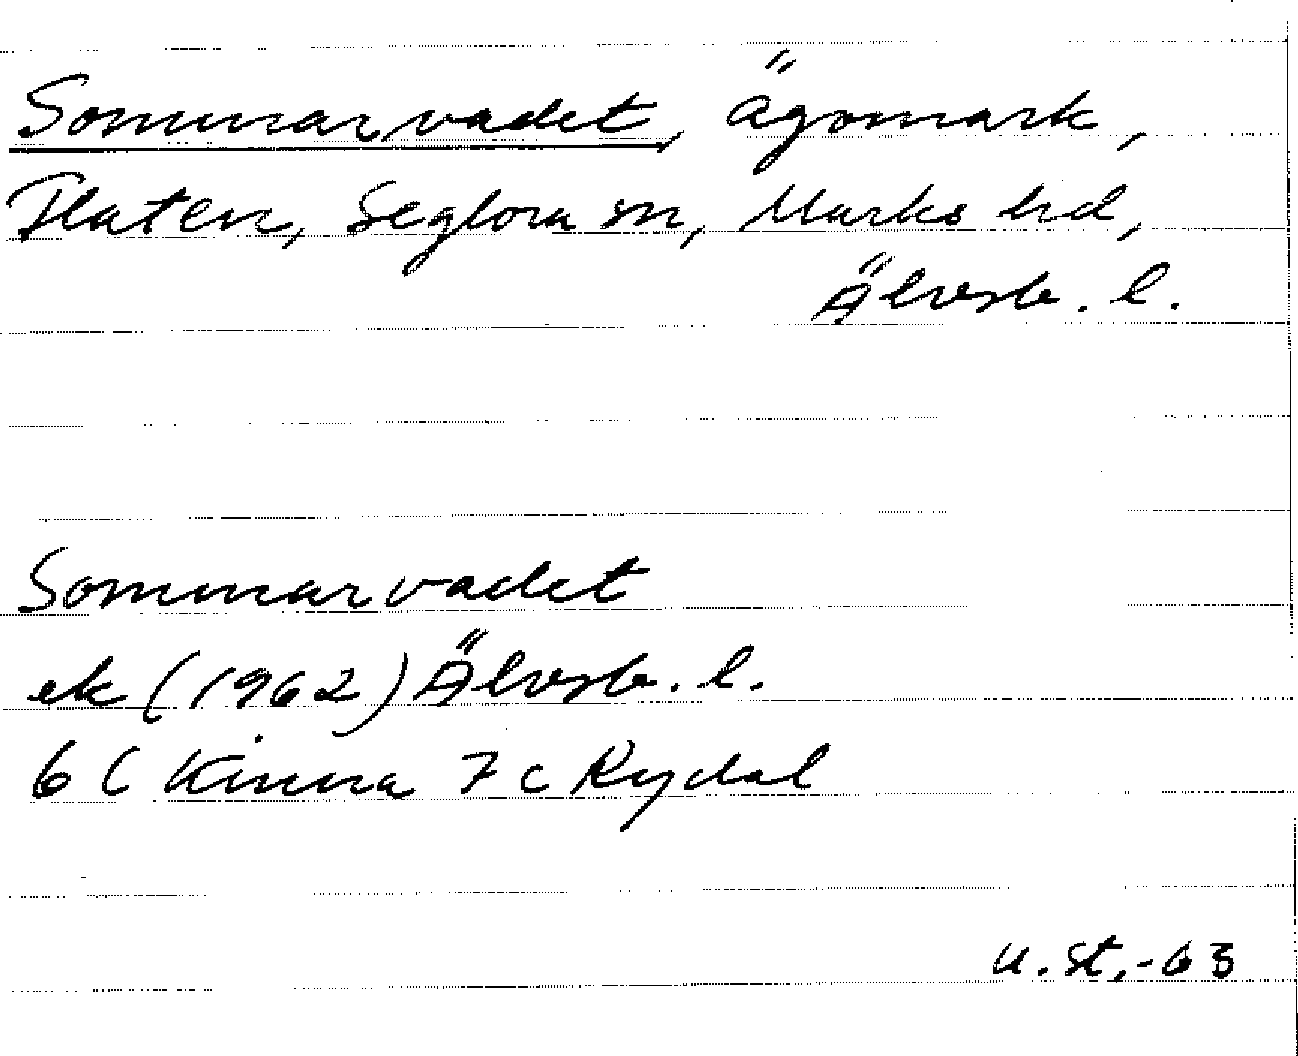 Sommarvadet, ägomark,
Flaten, Seglora sn, Marks hd,
Älvsb. l.
Sommarvadet
ek (1962) Älvsb. l.
6 C Kinna 7 c Rydal
U. St. -63